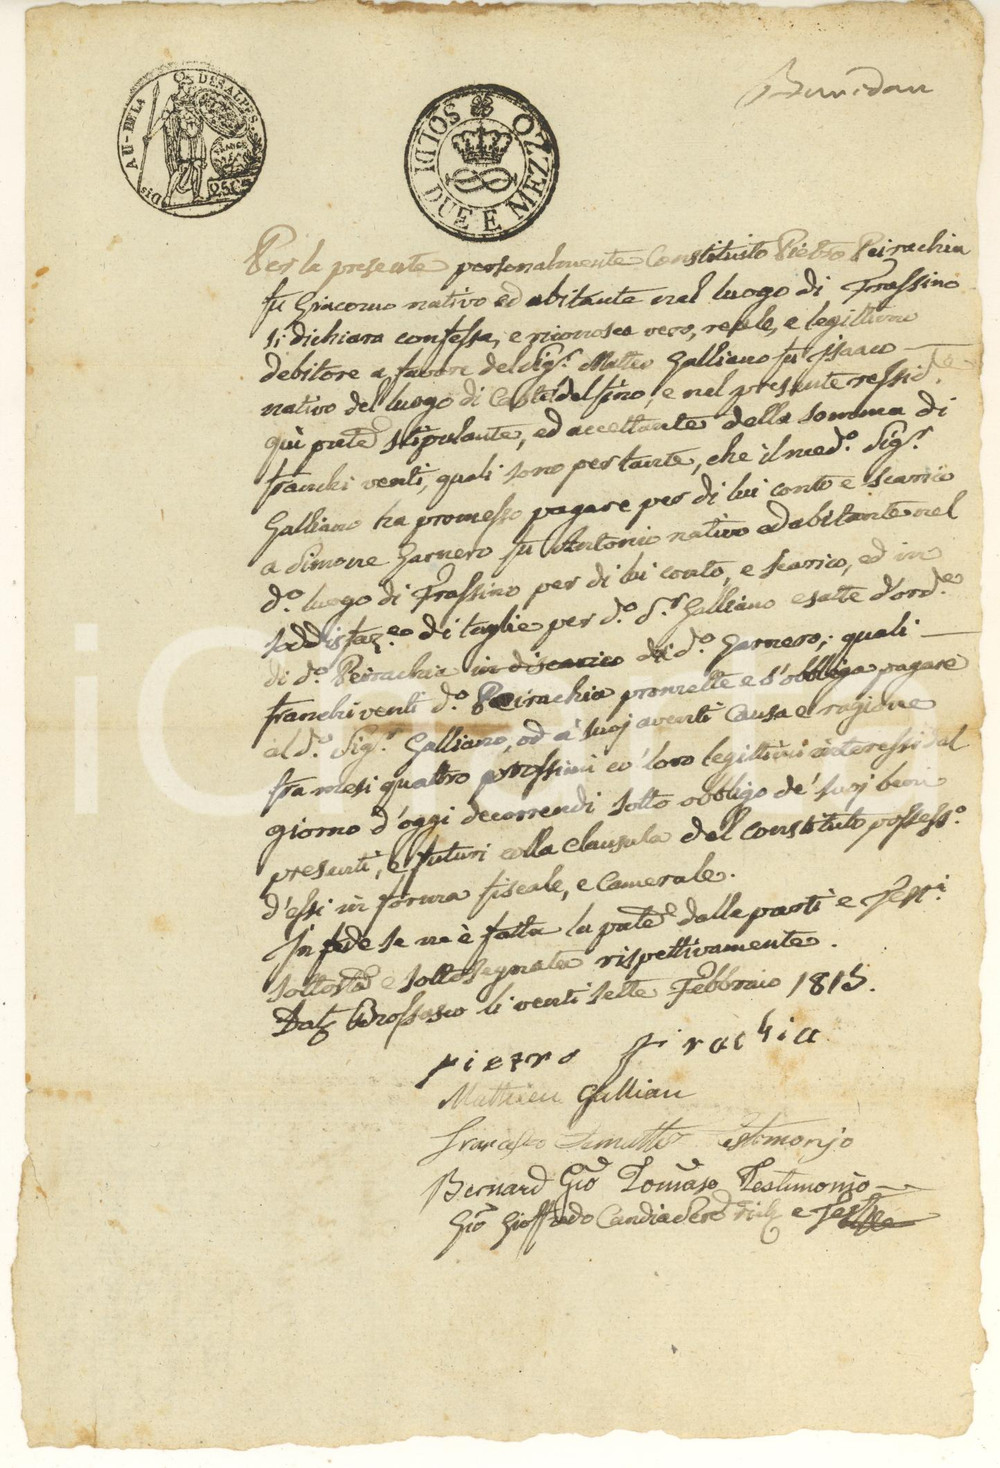 AU-DELA DES ALPES.
25 CS
SOLDI DUE E MEZZO
Per la presente personalmente Constituito Pietro Peirachia
fu Giacomo nativo ed abitante nel luogo di Frassino
si dichiara confessa, e riconosce vero, reale, e legittimo
debitore a favore del Sig.r Matteo Galliano fu Isaac
nativo del luogo di Casteldelfino, e nel presente
quì stipulante, ed accettante della somma di
franchi venti, quali sono per tante, che il med.o Sig.r
Galliano ha promesso pagare per di lui conto e scarico
a Simone Garnero fu Antonio nativo ed abitante nel
d.o luogo di Frassino per di lui conto, e scarico, ed in
di taglie per d.o S.r Galliano esatte d'ord.e
di d.o Peirachia in discarico di d.o Garnero; quali
franchi venti d.o Peirachia promette e s'obbliga pagare
al d.o Sig.r Galliano, od a' suoj aventi Causa e ragione
fra mesi quattro prossimi co' loro legittimi interessi dal
giorno d'oggi decorrendi sotto obbligo de' suoj beni
presenti, e futuri colla clausula del constituto possess.o
d'essi in forma fiscale, e Camerale.
In fede se ne è fatta la dalle parti e
e sottosegnata rispettivamente.
Brossasco li venti sette Febbraio 1815.
pietro pirachia
Mathieu Gallian
Francesco Testimonjo
Bernard Gio Tomaso Testimonio
Gio Gioffredo e